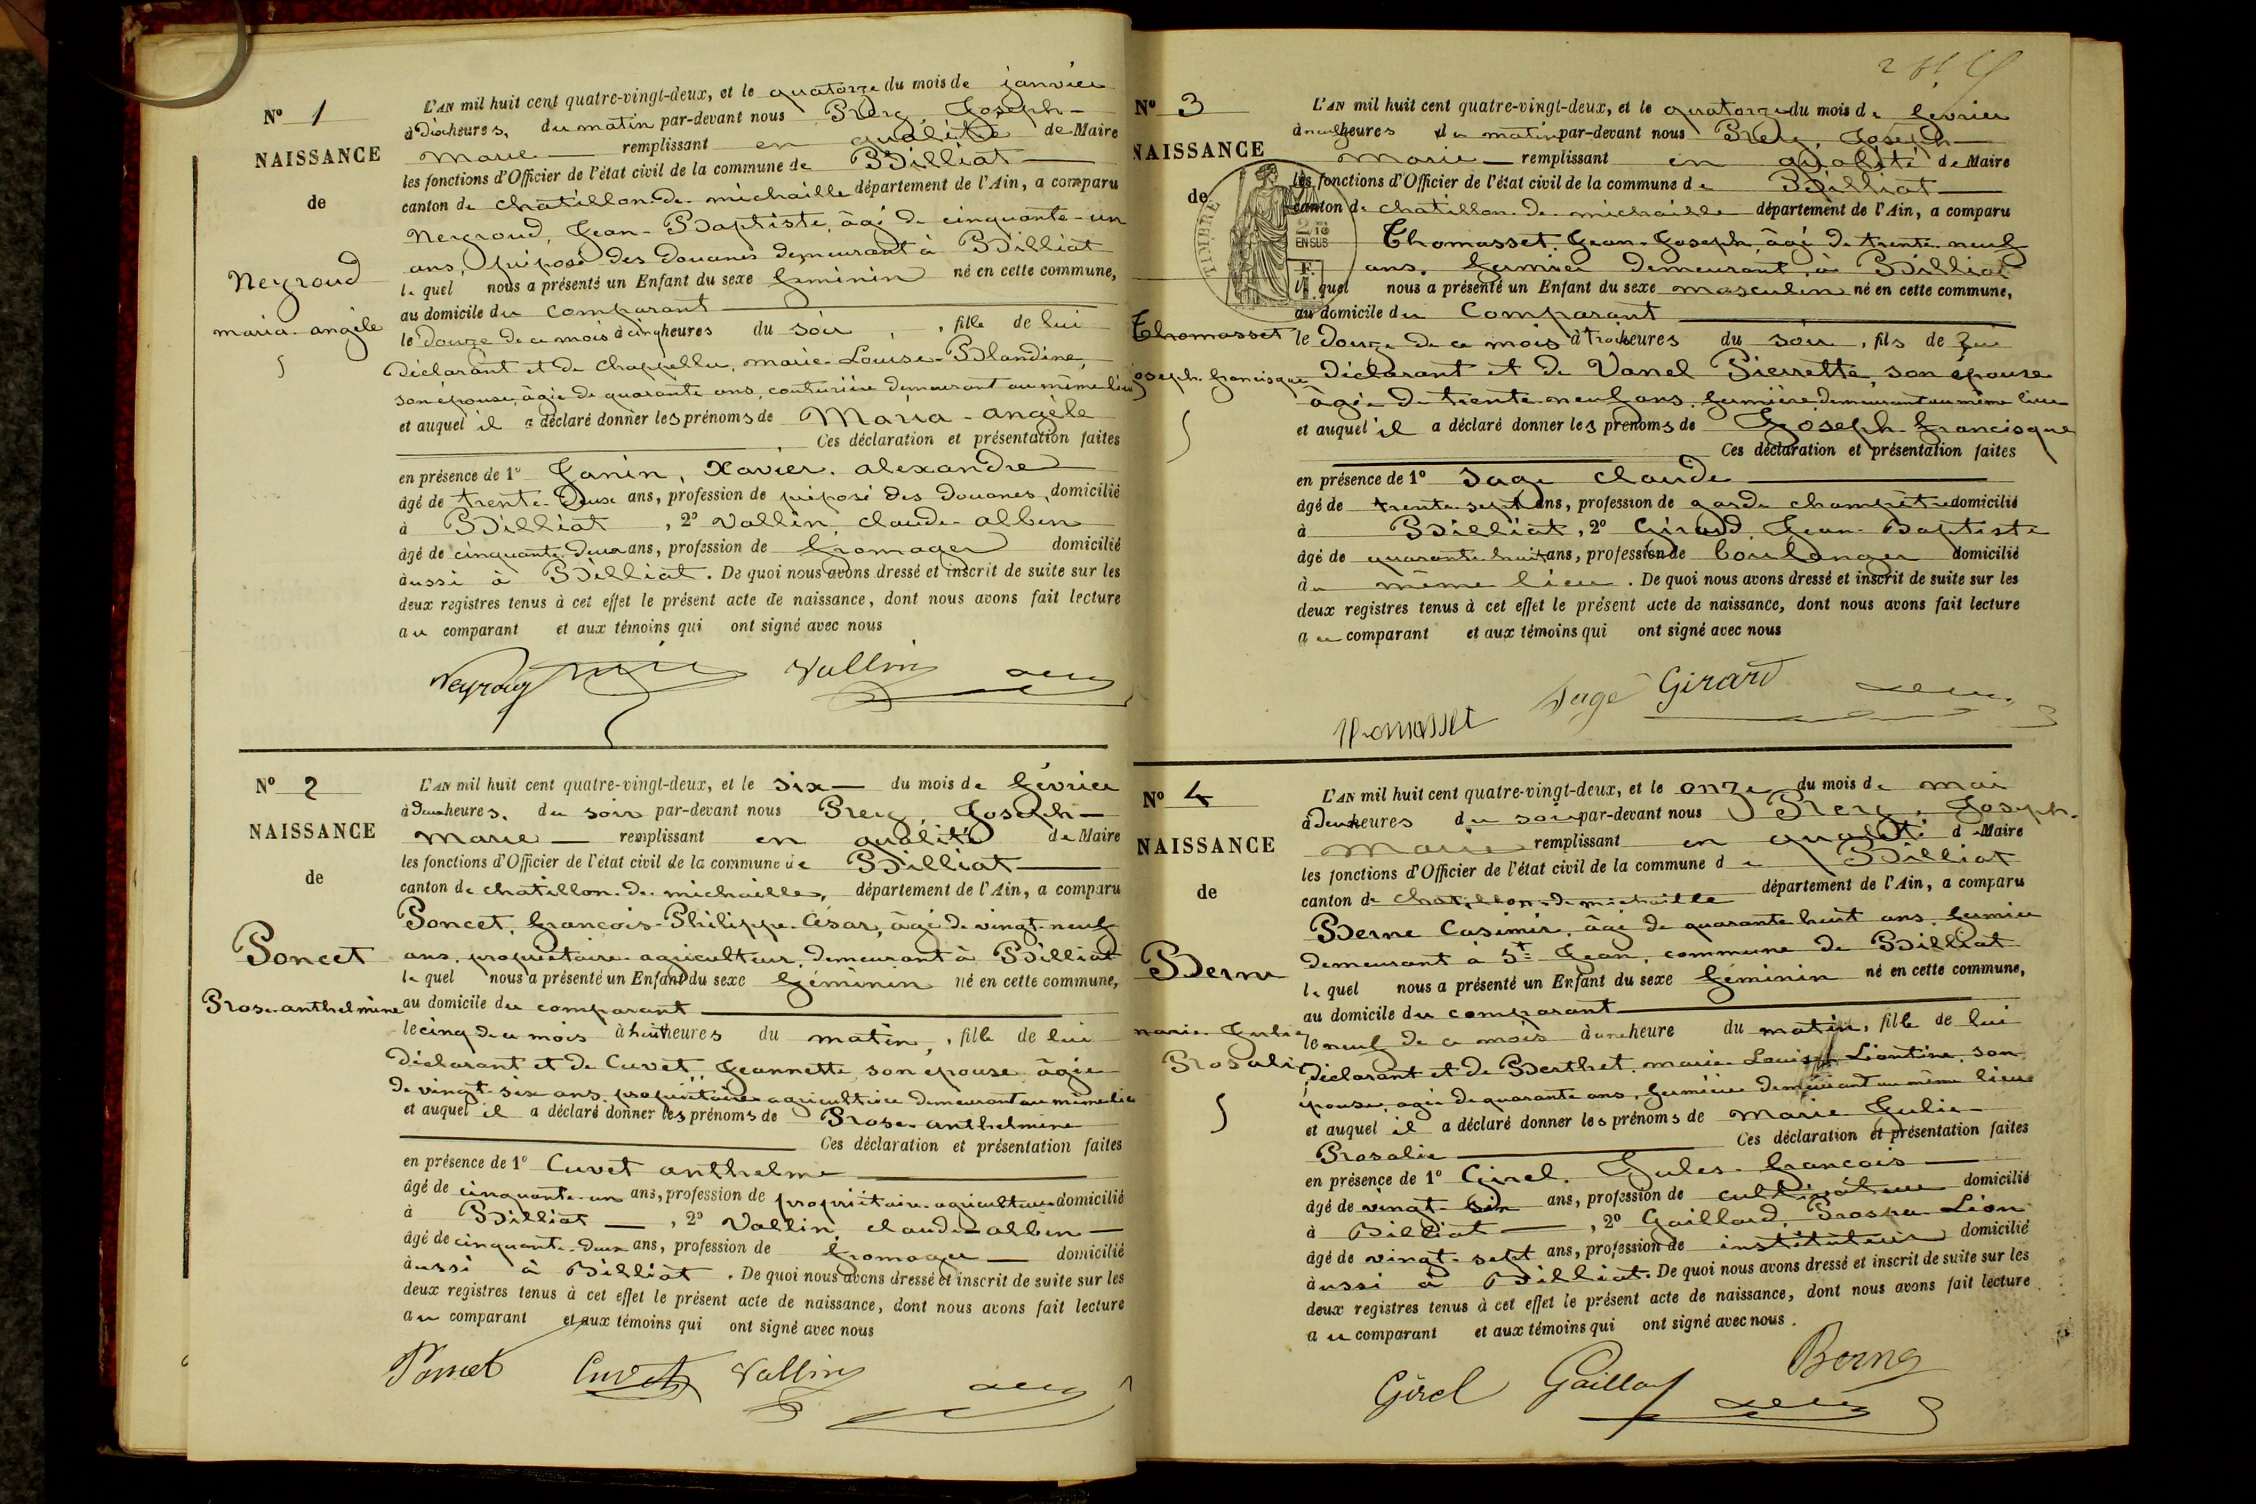 N° 1
NAISSANCE
de
Neyroud
maria-angèle
L'AN mil huit cent quatre-vingt-deux, et le quatorze du mois de janvier
à Dix heures, du matin par-devant nous Prery, Joseph-
Marie remplissant en qualité de Maire
les fonctions d'Officier de l'état civil de la commune de Billiat
canton de chatillon-de-michaille département de l'Ain, a comparu
Neyroud, Jean-Baptiste, âgé de cinquante-un
ans, préposé des Douanes demeurant à Billiat
lequel nous a présenté un Enfant du sexe féminin né en cette commune,
au domicile du Comparant
le Douze de ce mois à cinq heures du soir, fille de lui
Déclarant et de Chappellu, marie-Louise-Blandine,
son épouse, âgée de quarante ans, couturière demeurant au même lieu
et auquel il a déclaré donner les prénoms de Maria-angèle
Ces déclaration et présentation faites
en présence de 1° Janin, Xavier, alexandre
âgé de trente-deux ans, profession de préposé des Douanes, domicilié
à Billiat, 2° Vallin, claude-albin
âgé de cinquante-deux ans, profession de fromager domicilié
aussi à Billiat. De quoi nous avons dressé et inscrit de suite sur les
deux registres tenus à cet effet le présent acte de naissance, dont nous avons fait lecture
au comparant et aux témoins qui ont signé avec nous
Neyroud Vallin
N° 2
NAISSANCE
de
Poncet
Rose-anthelmine
L'AN mil huit cent quatre-vingt-deux, et le six du mois de février
à Deux heures, du soir par-devant nous Prery, Joseph-
Marie remplissant en qualité de Maire
les fonctions d'Officier de l'état civil de la commune de Billiat
canton de chatillon-de-michaille, département de l'Ain, a comparu
Poncet, François-Philippe-César, âgé de vingt-neuf
ans, propriétaire-agriculteur, demeurant à Billiat
lequel nous a présenté un Enfant du sexe féminin né en cette commune,
au domicile du comparant
le cinq de ce mois à huit heures du matin, fille de lui
Déclarant et de Cuvet, Jeannette, son épouse âgée
de vingt-six ans, propriétaire agricultrice demeurant au même lieu
et auquel il a déclaré donner les prénoms de Rose-anthelmine
Ces déclaration et présentation faites
en présence de 1° Cuvet anthelme
âgé de cinquante-un ans, profession de propriétaire-agriculteur domicilié
à Billiat, 2° Vallin, claude-albin
âgé de cinquante-deux ans, profession de fromager domicilié
aussi à Billiat. De quoi nous avons dressé et inscrit de suite sur les
deux registres tenus à cet effet le présent acte de naissance, dont nous avons fait lecture
au comparant et aux témoins qui ont signé avec nous
Poncet Cuvet Vallin
N° 3
NAISSANCE
de
Thomasset
Joseph-francisque
TIMBRE
EN SUS
L'AN mil huit cent quatre-vingt-deux, et le quatorze du mois de février
à neuf heures du matin par-devant nous Prery, Joseph-
Marie remplissant en qualité de Maire
les fonctions d'Officier de l'état civil de la commune de Billiat
canton de chatillon-de-michaille département de l'Ain, a comparu
Thomasset, Jean-Joseph, âgé de trente-neuf
ans, fermier demeurant à Billiat
lequel nous a présenté un Enfant du sexe masculin né en cette commune,
au domicile du Comparant
le Douze de ce mois à trois heures du soir, fils de lui
Déclarant et de Vanel Pierrette, son épouse
âgée de trente-neuf ans, fermière demeurant au même lieu
et auquel il a déclaré donner les prénoms de Joseph-francisque
Ces déclaration et présentation faites
en présence de 1° Sage claude
âgé de trente-sept ans, profession de garde champêtre domicilié
à Billiat, 2° Girard, Jean-Baptiste
âgé de quarante-huit ans, profession de boulanger domicilié
au même lieu. De quoi nous avons dressé et inscrit de suite sur les
deux registres tenus à cet effet le présent acte de naissance, dont nous avons fait lecture
au comparant et aux témoins qui ont signé avec nous
Thomasset Sage Girard
N° 4
NAISSANCE
de
Berne
marie-Julie
Rosalie
L'AN mil huit cent quatre-vingt-deux, et le onze du mois de mai
à deux heures du soir par-devant nous Prery, Joseph-
Marie remplissant en qualité de Maire
les fonctions d'Officier de l'état civil de la commune de Billiat
canton de chatillon-de-michaille département de l'Ain, a comparu
Berne Casimir, âgé de quarante-huit ans, fermier
demeurant à St Jean, commune de Billiat
lequel nous a présenté un Enfant du sexe féminin né en cette commune,
au domicile du comparant
le neuf de ce mois à une heure du matin, fille de lui
Déclarant et de Berthet, marie-Louise-Léontine, son
épouse, agée de quarante ans, fermière demeurant au même lieu
et auquel il a déclaré donner les prénoms de Marie Julie-
Rosalie Ces déclaration et présentation faites
en présence de 1° Girel, Jules-françois
âgé de vingt-six ans, profession de cultivateur domicilié
à Billiat, 2° Gaillard, Prosper Léon
âgé de vingt-sept ans, profession de instituteur domicilié
aussi à Billiat. De quoi nous avons dressé et inscrit de suite sur les
deux registres tenus à cet effet le présent acte de naissance, dont nous avons fait lecture
au comparant et aux témoins qui ont signé avec nous.
Girel Gaillard Berne